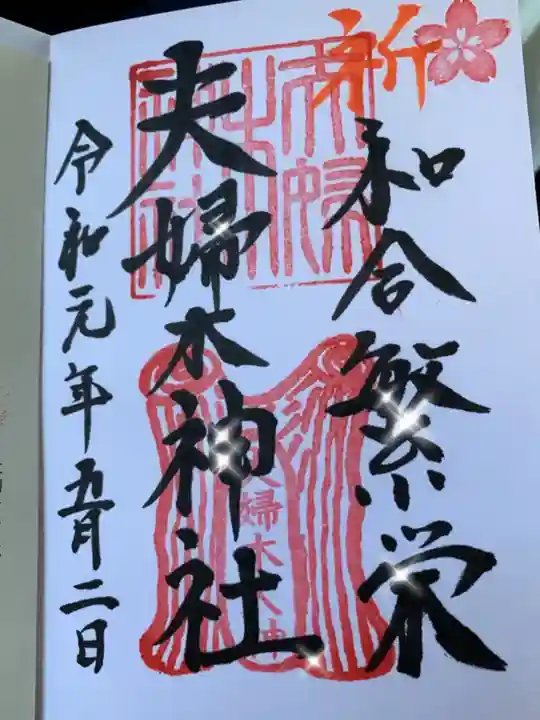 祈
和合繁栄
夫婦木神社
令和元年五月二日
夫婦木
神社
夫婦木大神